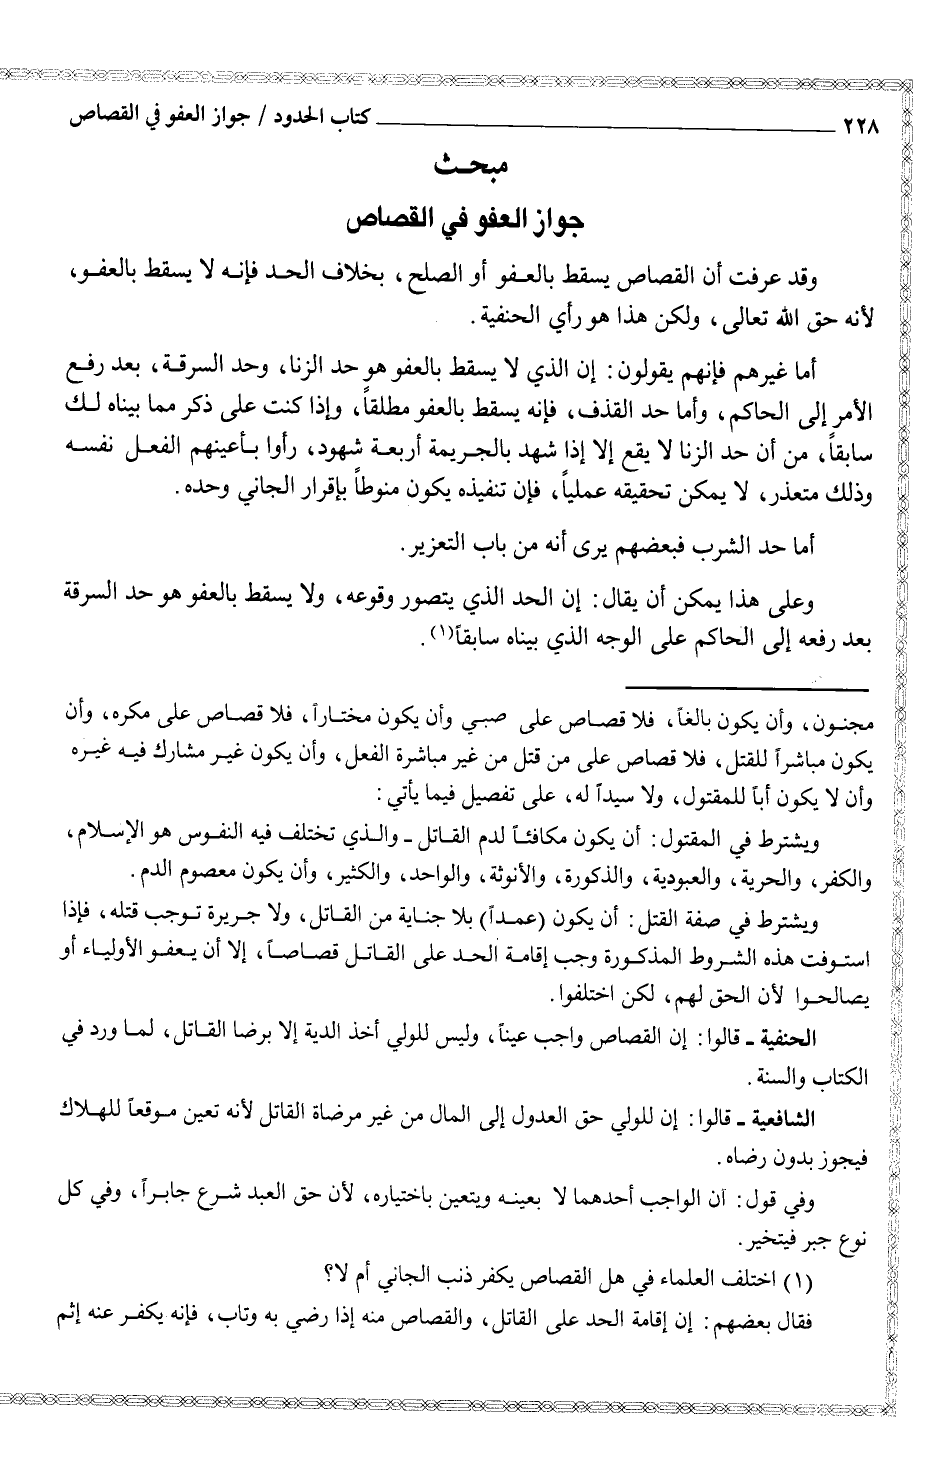 ٢٢٨ كتاب الحدود / جواز العفو في القصاص
مبحث
جواز العفو في القصاص
وقد عرفت أن القصاص يسقط بالعفو أو الصلح، بخلاف الحد فإنه لا يسقط بالعفو،
لأنه حق الله تعالى، ولكن هذا هو رأي الحنفية.
أما غيرهم فإنهم يقولون: إن الذي لا يسقط بالعفو هو حد الزنا، وحد السرقة، بعد رفع
الأمر إلى الحاكم، وأما حد القذف، فإنه يسقط بالعفو مطلقاً، وإذا كنت على ذكر مما بيناه لك
سابقاً، من أن حد الزنا لا يقع إلا إذا شهد بالجريمة أربعة شهود، رأوا بأعينهم الفعل نفسه
وذلك متعذر، لا يمكن تحقيقه عملياً، فإن تنفيذه يكون منوطاً بإقرار الجاني وحده.
أما حد الشرب فبعضهم يرى أنه من باب التعزير.
وعلى هذا يمكن أن يقال: إن الحد الذي يتصور وقوعه، ولا يسقط بالعفو هو حد السرقة
بعد رفعه إلى الحاكم على الوجه الذي بيناه سابقاً(١).
مجنون، وأن يكون بالغاً، فلا قصاص على صبي وأن يكون مختاراً، فلا قصاص على مكره، وأن
يكون مباشراً للقتل، فلا قصاص على من قتل من غير مباشرة الفعل، وأن يكون غير مشارك فيه غيره
وأن لا يكون أباً للمقتول، ولا سيداً له، على تفصيل فيما يأتي:
ويشترط في المقتول: أن يكون مكافئاً لدم القاتل ـ والذي تختلف فيه النفوس هو الإسلام،
والكفر، والحرية، والعبودية، والذكورة، والأنوثة، والواحد، والكثير، وأن يكون معصوم الدم.
ويشترط في صفة القتل: أن يكون (عمداً) بلا جناية من القاتل، ولا جريرة توجب قتله، فإذا
استوفت هذه الشروط المذكورة وجب إقامة الحد على القاتل قصاصاً، إلا أن يعفو الأولياء أو
يصالحوا لأن الحق لهم، لكن اختلفوا.
الحنفية ـ قالوا: إن القصاص واجب عيناً، وليس للولي أخذ الدية إلا برضا القاتل، لما ورد في
الكتاب والسنة.
الشافعية ـ قالوا: إن للولي حق العدول إلى المال من غير مرضاة القاتل لأنه تعين موقعاً للهلاك
فيجوز بدون رضاه.
وفي قول: أن الواجب أحدهما لا بعينه ويتعين باختياره، لأن حق العبد شرع جابراً، وفي كل
نوع جبر فيتخير.
(١) اختلف العلماء في هل القصاص يكفر ذنب الجاني أم لا؟
فقال بعضهم: إن إقامة الحد على القاتل، والقصاص منه إذا رضي به وتاب، فإنه يكفر عنه إثم